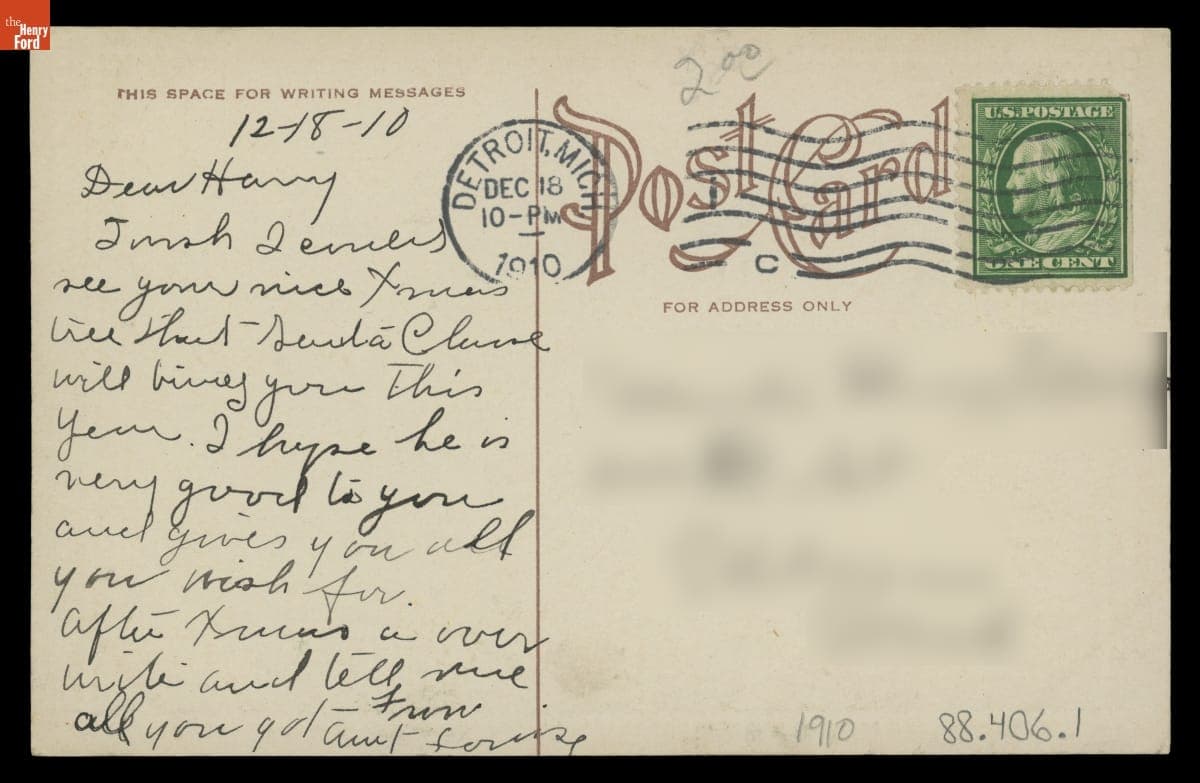 the
Henry
Ford
THIS SPACE FOR WRITING MESSAGES
12-18-10
Dear Harry
I wish I could
see your nice Xmas
tree that Santa Clause
will bring you this
Year. I hope he is
very good to you
and gives you all
you wish for.
After Xmas is over
write and tell me
all you got From
Aunt Louise
2 00
Post Card
DETROIT, MICH.
DEC 18
10-PM
1910
C
U.S. POSTAGE
ONE CENT
FOR ADDRESS ONLY
1910
88.406.1